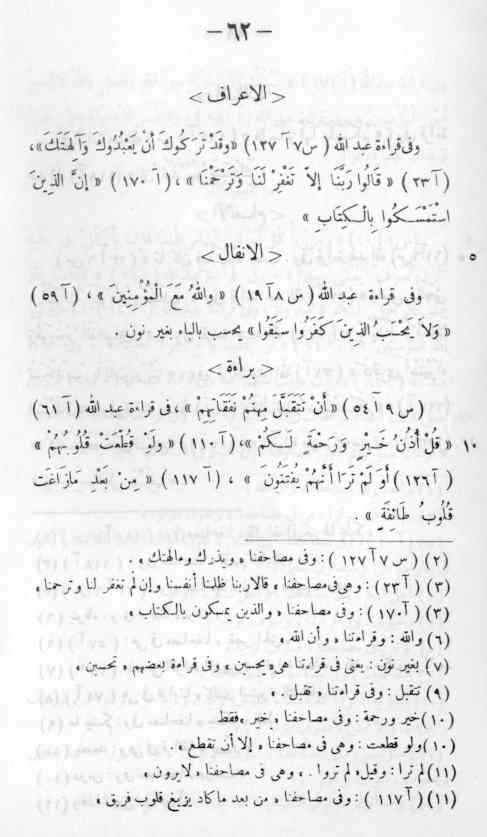 — ٦٢ —
< الاعراف >
وفى قراءة عبد الله ( س ٧ آ ١٢٧ ) « وَقَدْ تَرَكُوكَ أَنْ يَعْبُدُوكَ وَآلِهَتَكَ » ،
( آ ٢٣ ) « قَالُوا رَبَّنَا إلاّ تَغْفِرْ لَنَا وَتَرْحَمْنَا » ، ( آ ١٧٠ ) « إنَّ الذِينَ
اسْتَمْسَكُوا بِالْكِتَابِ »
٥ < الانفال >
وفى قراءة عبد الله ( س ٨ آ ١٩ ) « وَاللهُ مَعَ الْمُؤْمِنِينَ » ، ( آ ٥٩ )
« وَلاَ يَحْسَبُ الذِينَ كَفَرُوا سَبَقُوا » يحسب بالياء بغير نون .
< براءة >
( س ٩ آ ٥٤ ) « أَنْ تَتَقَبَّلَ مِنْهُمْ نَفَقَاتِهِمْ » ، فى قراءة عبد الله ( آ ٦١ )
١٠ « قُلْ أُذُنُ خَيْرٍ وَرَحْمَةٍ لَكُمْ » ، ( آ ١١٠ ) « وَلَوْ قُطِّعَتْ قُلُوبُهُمْ »
( آ ١٢٦ ) أَوَ لَمْ تَرَ أَنَّهُمْ يُفْتَنُونَ » ، ( آ ١١٧ ) « مِنْ بَعْدِ مَازَاغَتْ
قُلُوبُ طَائِفَةٍ » .
( ٢ ) ( س ٧ آ ١٢٧ ) : وفى مصاحفنا « ويذرك وءالهتك » .
( ٣ ) ( آ ٢٣ ) : وهى فى مصاحفنا « قالا ربنا ظلمنا أنفسنا وإن لم تغفر لنا وترحمنا »
( ٣ ) ( آ ١٧٠ ) : وفى مصاحفنا « والذين يمسكون بالكتاب »
( ٦ ) والله : وقراءتنا « وأن الله »
( ٧ ) بغير نون : يعنى فى قراءتنا هى « يحسبن » وفى قراءة بعضهم « تحسبن »
( ٩ ) تتقبل : وفى قراءتنا « تقبل » .
( ١٠ ) خير ورحمة : وفى مصاحفنا « خير » فقط
( ١٠ ) ولو قطعت : وهى فى مصاحفنا « إلا أن تقطع »
( ١١ ) لم تر ا : وقيل « لم تروا » . وهى فى مصاحفنا « لايرون »
( ١١ ) ( آ ١١٧ ) : وفى مصاحفنا « من بعد ما كاد يزيغ قلوب فريق »